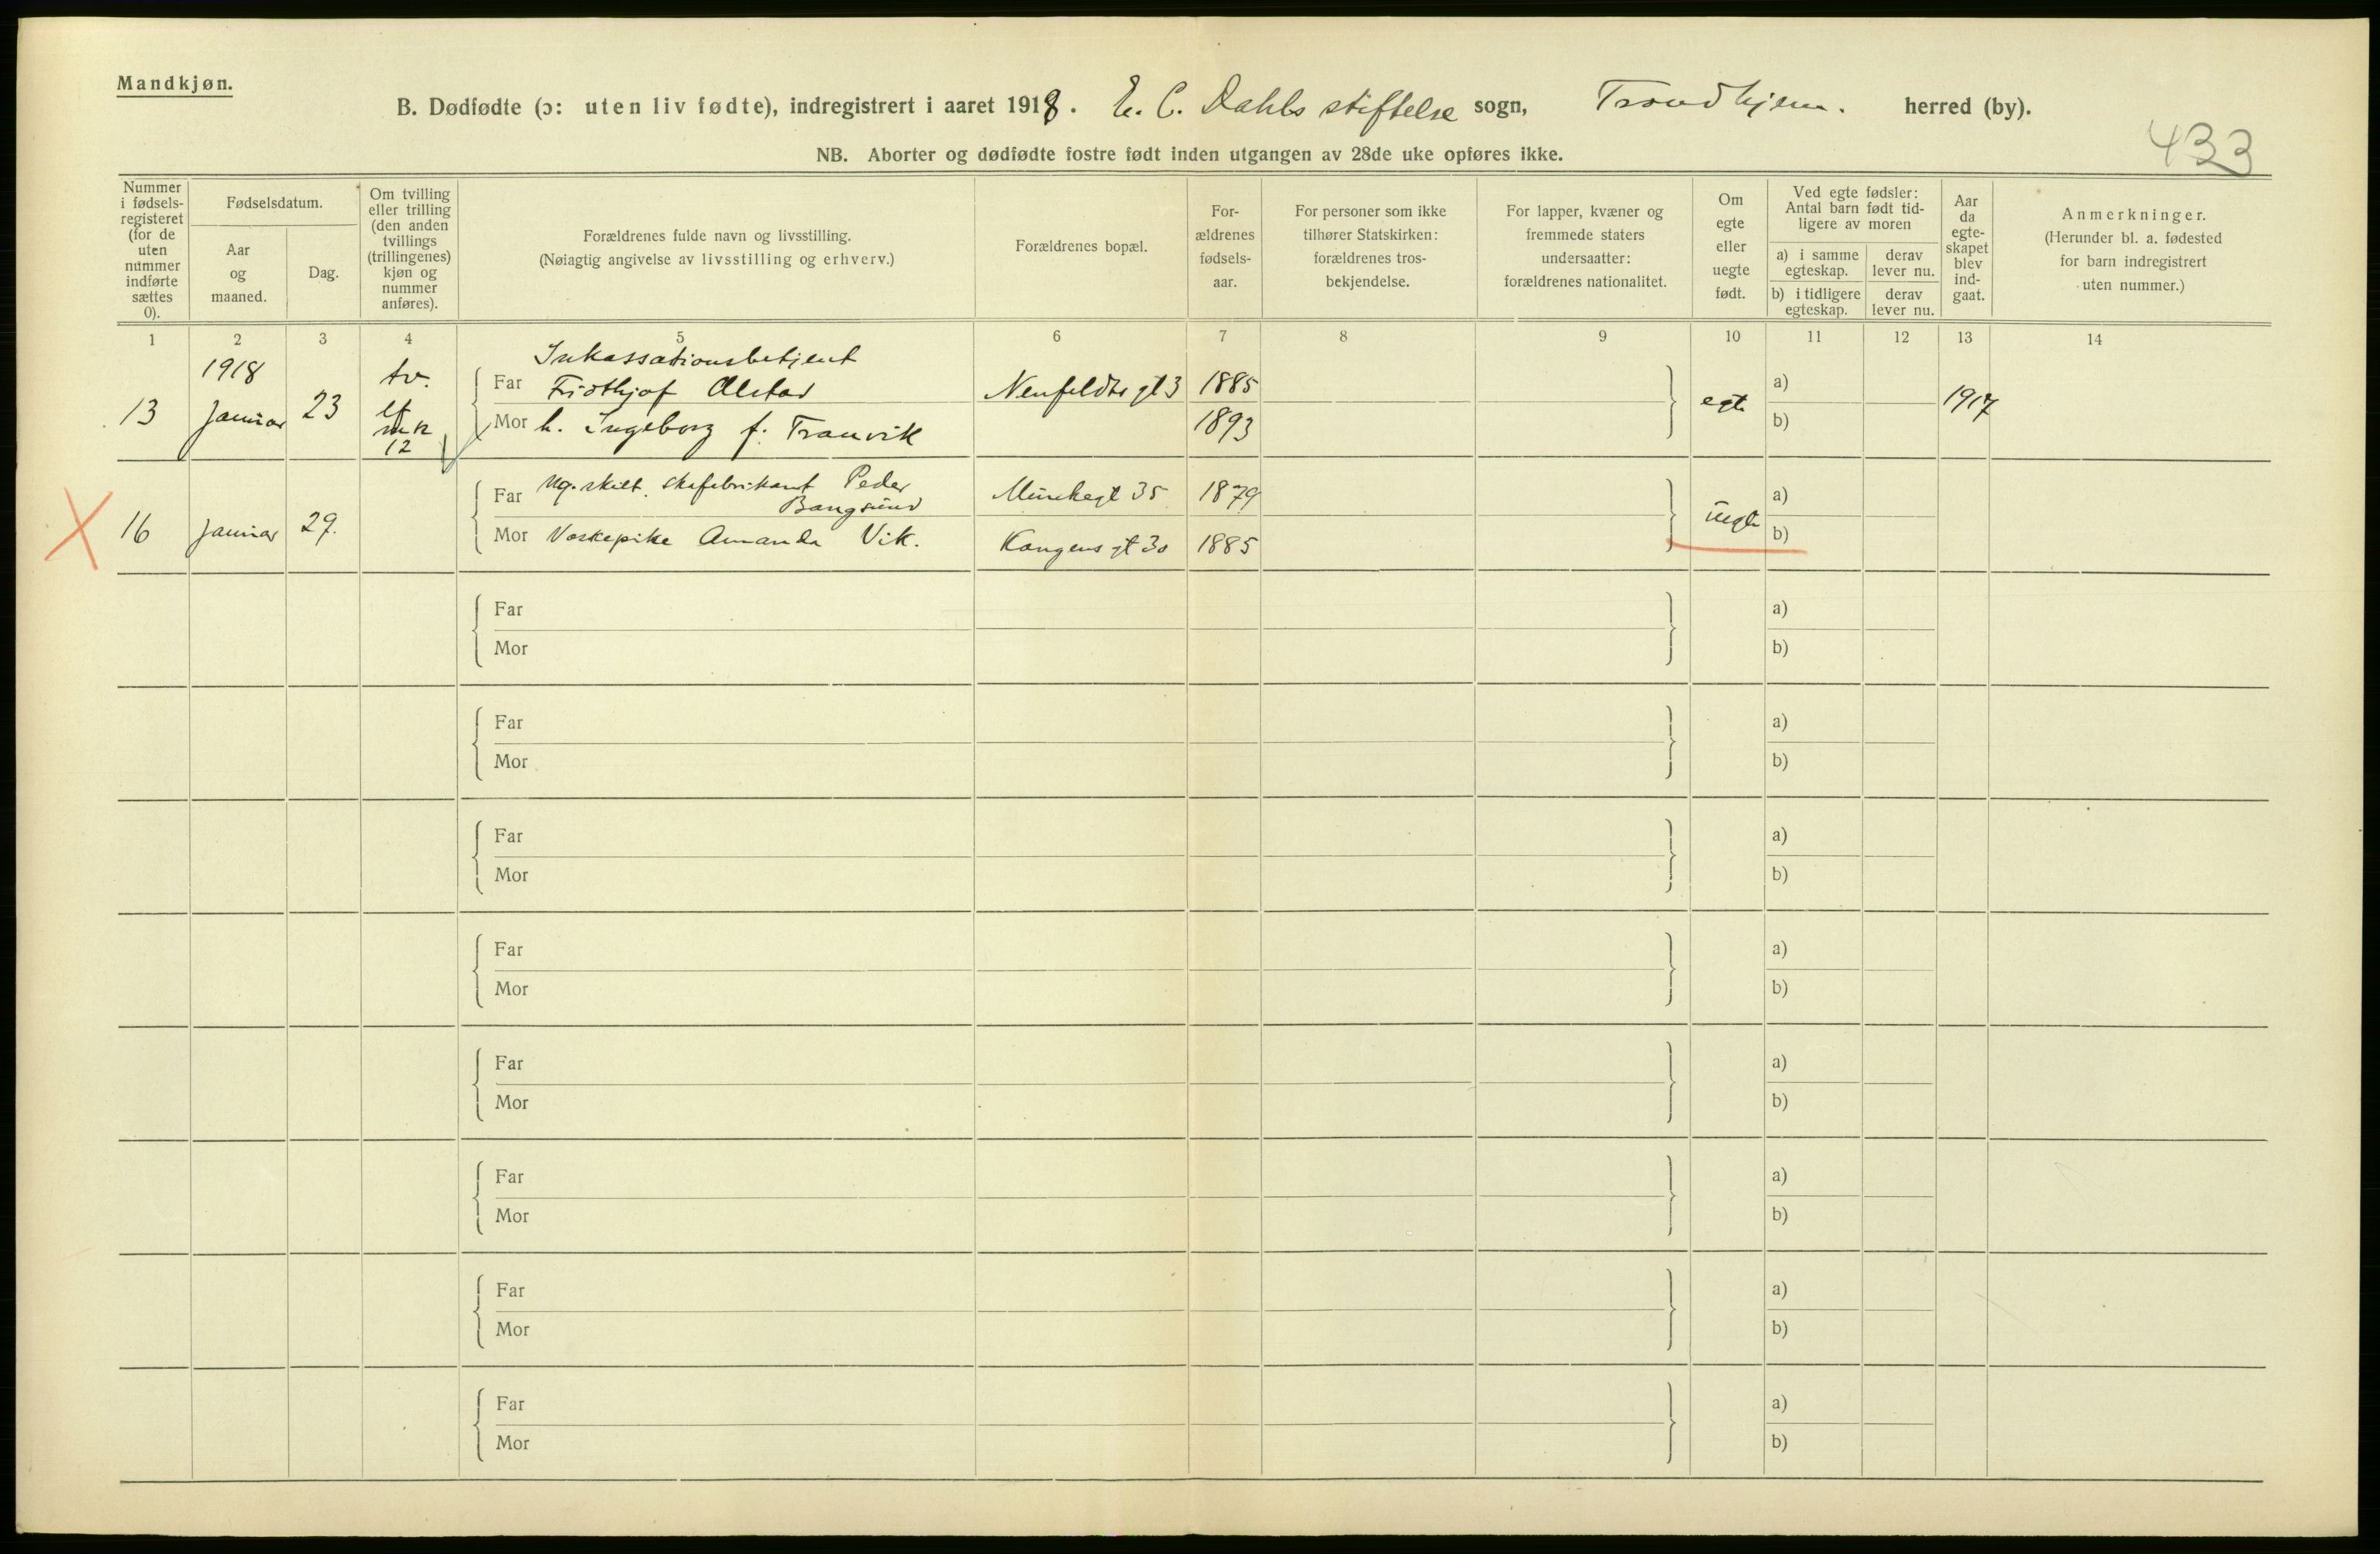 Mandkjøn.
B. Dødfødte (ɔ: uten liv fødte), indregistrert i aaret 1918. E. C. Dahls stiftelse sogn, Trondhjem. herred (by).
433
NB. Aborter og dødfødte fostre født inden utgangen av 28de uke opføres ikke.
Nummer i fødsels-registeret (for de uten nummer indførte sættes 0).
Fødselsdatum.
Aar og maaned.
Dag.
Om tvilling eller trilling (den anden tvillings (trillingenes) kjøn og nummer anføres).
Forældrenes fulde navn og livsstilling.
(Nøiagtig angivelse av livsstilling og erhverv.)
Forældrenes bopæl.
For-ældrenes fødsels-aar.
For personer som ikke tilhører Statskirken: forældrenes tros-bekjendelse.
For lapper, kvæner og fremmede staters undersaatter: forældrenes nationalitet.
Om egte eller uegte født.
Ved egte fødsler: Antal barn født tid-ligere av moren
a) i samme egteskap.
derav lever nu.
b) i tidligere egteskap.
derav lever nu.
Aar da egte-skapet blev ind-gaat.
Anmerkninger.
(Herunder bl. a. fødested for barn indregistrert uten nummer.)
1 2 3 4 5 6 7 8 9 10 11 12 13 14
13 1918 Januar 23 tv.
12
Inkassationsbetjent
Far Fridthjof Alstad Neufeldts gt 3 1885 egte a) 1917
Mor h. Ingeborg f. Tranvik 1893 b)
16 Januar 29.
Far Ug. skilt. skofabrikant Peder Bangsund Munkegt 35 1879 uegte a)
Mor Vaskepike Amanda Vik. Kongens gt 30 1885 b)
Far a)
Mor b)
Far a)
Mor b)
Far a)
Mor b)
Far a)
Mor b)
Far a)
Mor b)
Far a)
Mor b)
Far a)
Mor b)
Far a)
Mor b)